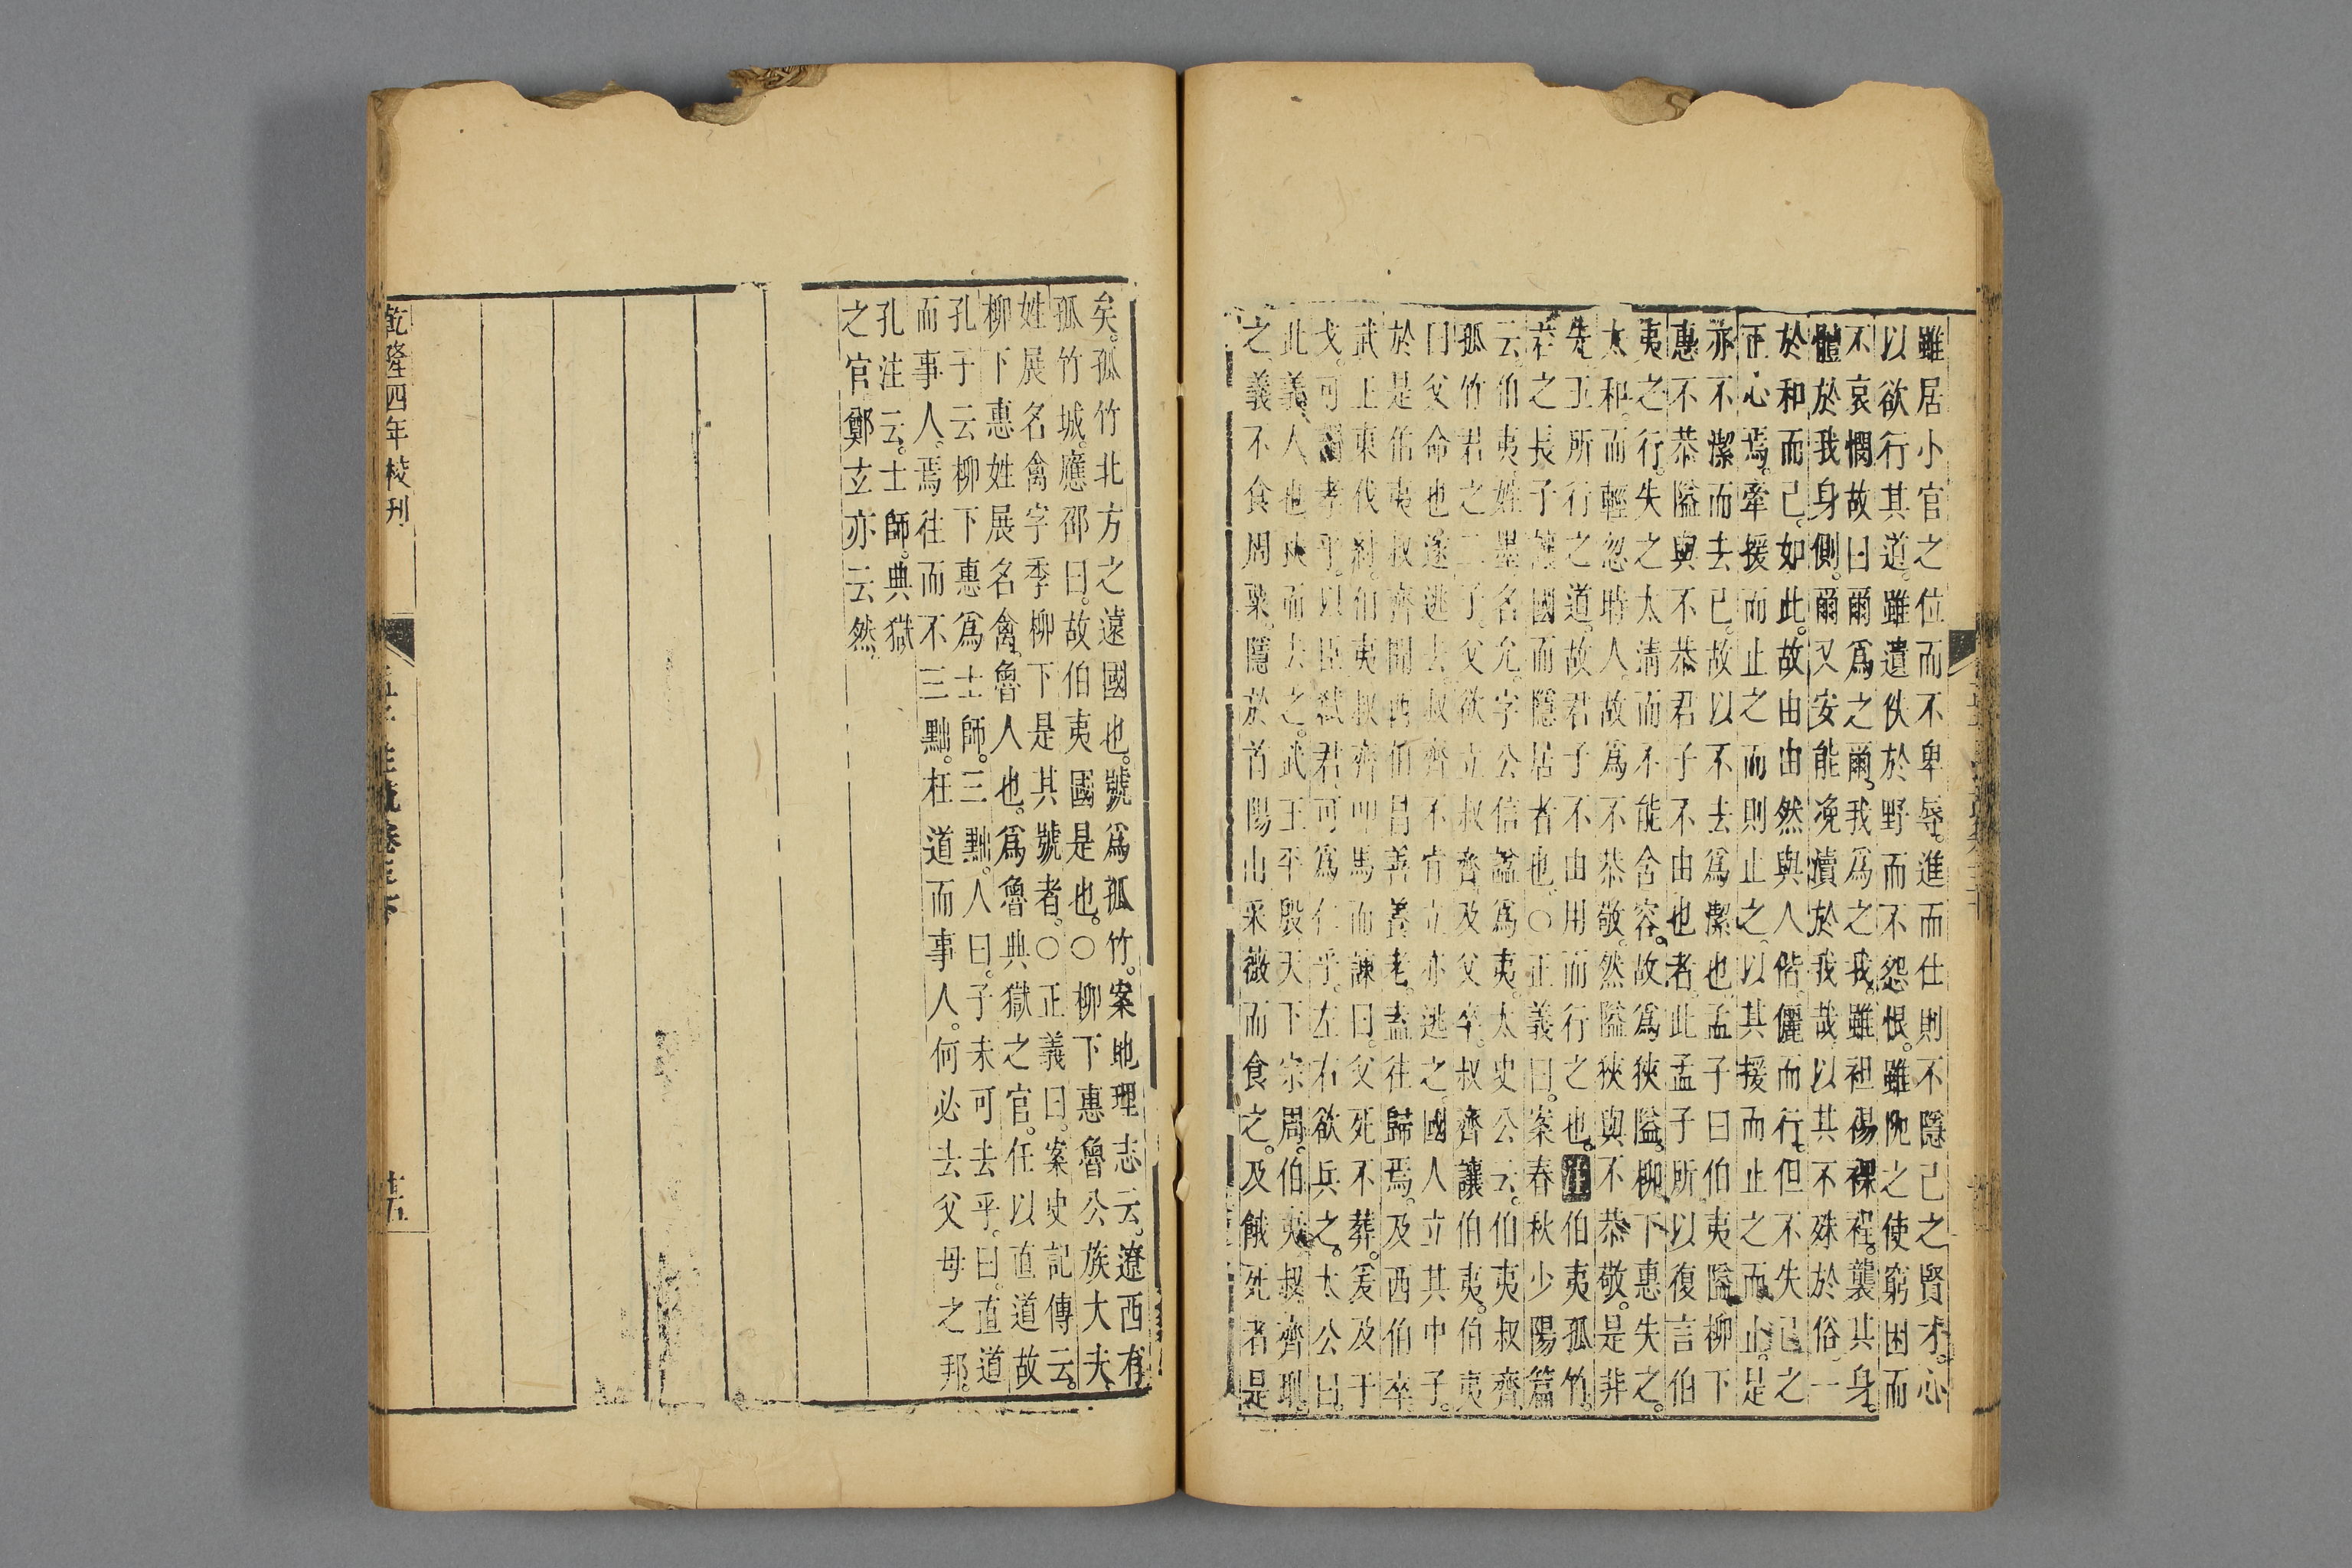 雖居小官之位而不卑辱。進而仕則不隱己之賢才。心
以欲行其道。雖遺佚於野而不怨恨。雖阨之使窮困而
不哀憫故曰爾爲之爾。我爲之我。雖袒裼裸裎。襲其身。
體於我身側。爾又安能浼瀆於我哉。以其不殊於俗一
於和而己。如此。故由由然與人偕。儷而行。但不失己之
正心焉。牽援而止之而則止之。以其援而止之而止。是
亦不潔而去已。故以不去爲潔也。孟子曰伯夷隘柳下
惠不恭隘與不恭君子不由也者。此孟子所以復言伯
夷之行。失之太清而不能含容。故爲狹隘。柳下惠失之。
太和。而輕忽時人。故爲不恭敬。然隘狹與不恭敬。是非
先王所行之道。故君子不由用而行之也。注伯夷孤竹。
君之長子讓國而隱居者也。○正義曰。案春秋少陽篇
云。伯夷姓墨名允。字公信諡爲夷。太史公云。伯夷叔齊
孤竹君之二子。父欲立叔齊。及父卒。叔齊讓伯夷。伯夷
曰父命也遂逃去。叔齊不肯立亦逃之。國人立其中子。
於是伯夷叔齊聞西伯昌善養老。盍往歸焉。及西伯卒
武王東伐紂。伯夷叔齊叩馬而諫曰。父死不葬。爰及干
戈。可謂孝乎。以臣弑君。可爲仁乎。左右欲兵之。太公曰。
此義人也扶而去之。武王平殷天下宗周。伯夷叔齊恥。
之義不食周粟。隱於首陽山采薇而食之。及餓死者是
矣。孤竹北方之遠國也。號爲孤竹。案地理志云。遼西有
孤竹城。應邵曰。故伯夷國是也。○柳下惠魯公族大夫
姓展名禽字季柳下是其號者。○正義曰。案史記傳云。
柳下惠姓展名禽。魯人也。爲魯典獄之官。任以直道故
孔子云柳下惠爲士師。三黜。人曰。子未可去乎。曰。直道
而事人。焉往而不三黜。枉道而事人。何必去父母之邦。
孔注云。士師。典獄
之官。鄭玄亦云然。
乾隆四年校刊